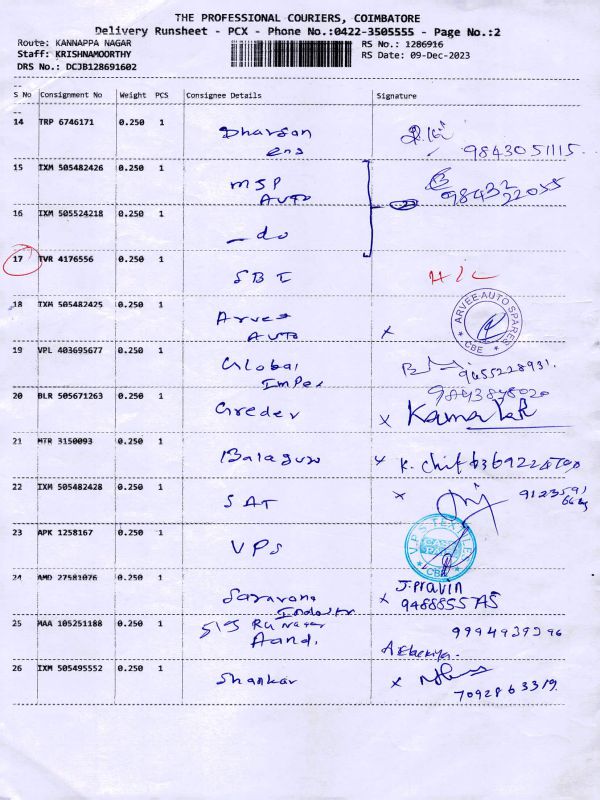 THE PROFESSIONAL COURIERS, COIMBATORE
Delivery Runsheet - PCX - Phone No.:0422-3505555 - Page No.:2
Route: KANNAPPA NAGAR
RS No.: 1286916
Staff: KRISHNAMOORTHY
RS Date: 09-Dec-2023
DRS No.: DCJB128691602
S No Consignment No Weight PCS Consignee Details Signature
14 TRP 6746171 0.250 1 Dharson
ens
9843051115.
15 IXM 505482426 0.250 1 MSP
AUTO
98432
22055
16 IXM 505524218 0.250 1 - do
17 TVR 4176556 0.250 1 SBI H/C
18 IXM 505482425 0.250 1 Arvee
AUTO
X
ARVEE AUTO SPARES
CBE
19 VPL 403695677 0.250 1 Global
Impex
9655228931.
20 BLR 505671263 0.250 1 Greder
9843848020
X
21 MTR 3150093 0.250 1 Balaguru
22 IXM 505482428 0.250 1 SAT
X
23 APK 1258167 0.250 1 VPS
V.P.S TEXTILES
24 AMD 27581076 0.250 1 Saravana
J.Pravin
X
25 MAA 105251188 0.250 1 515 RK Nagar
Aand.
26 IXM 505495552 0.250 1 Shankar
X
7092863319.